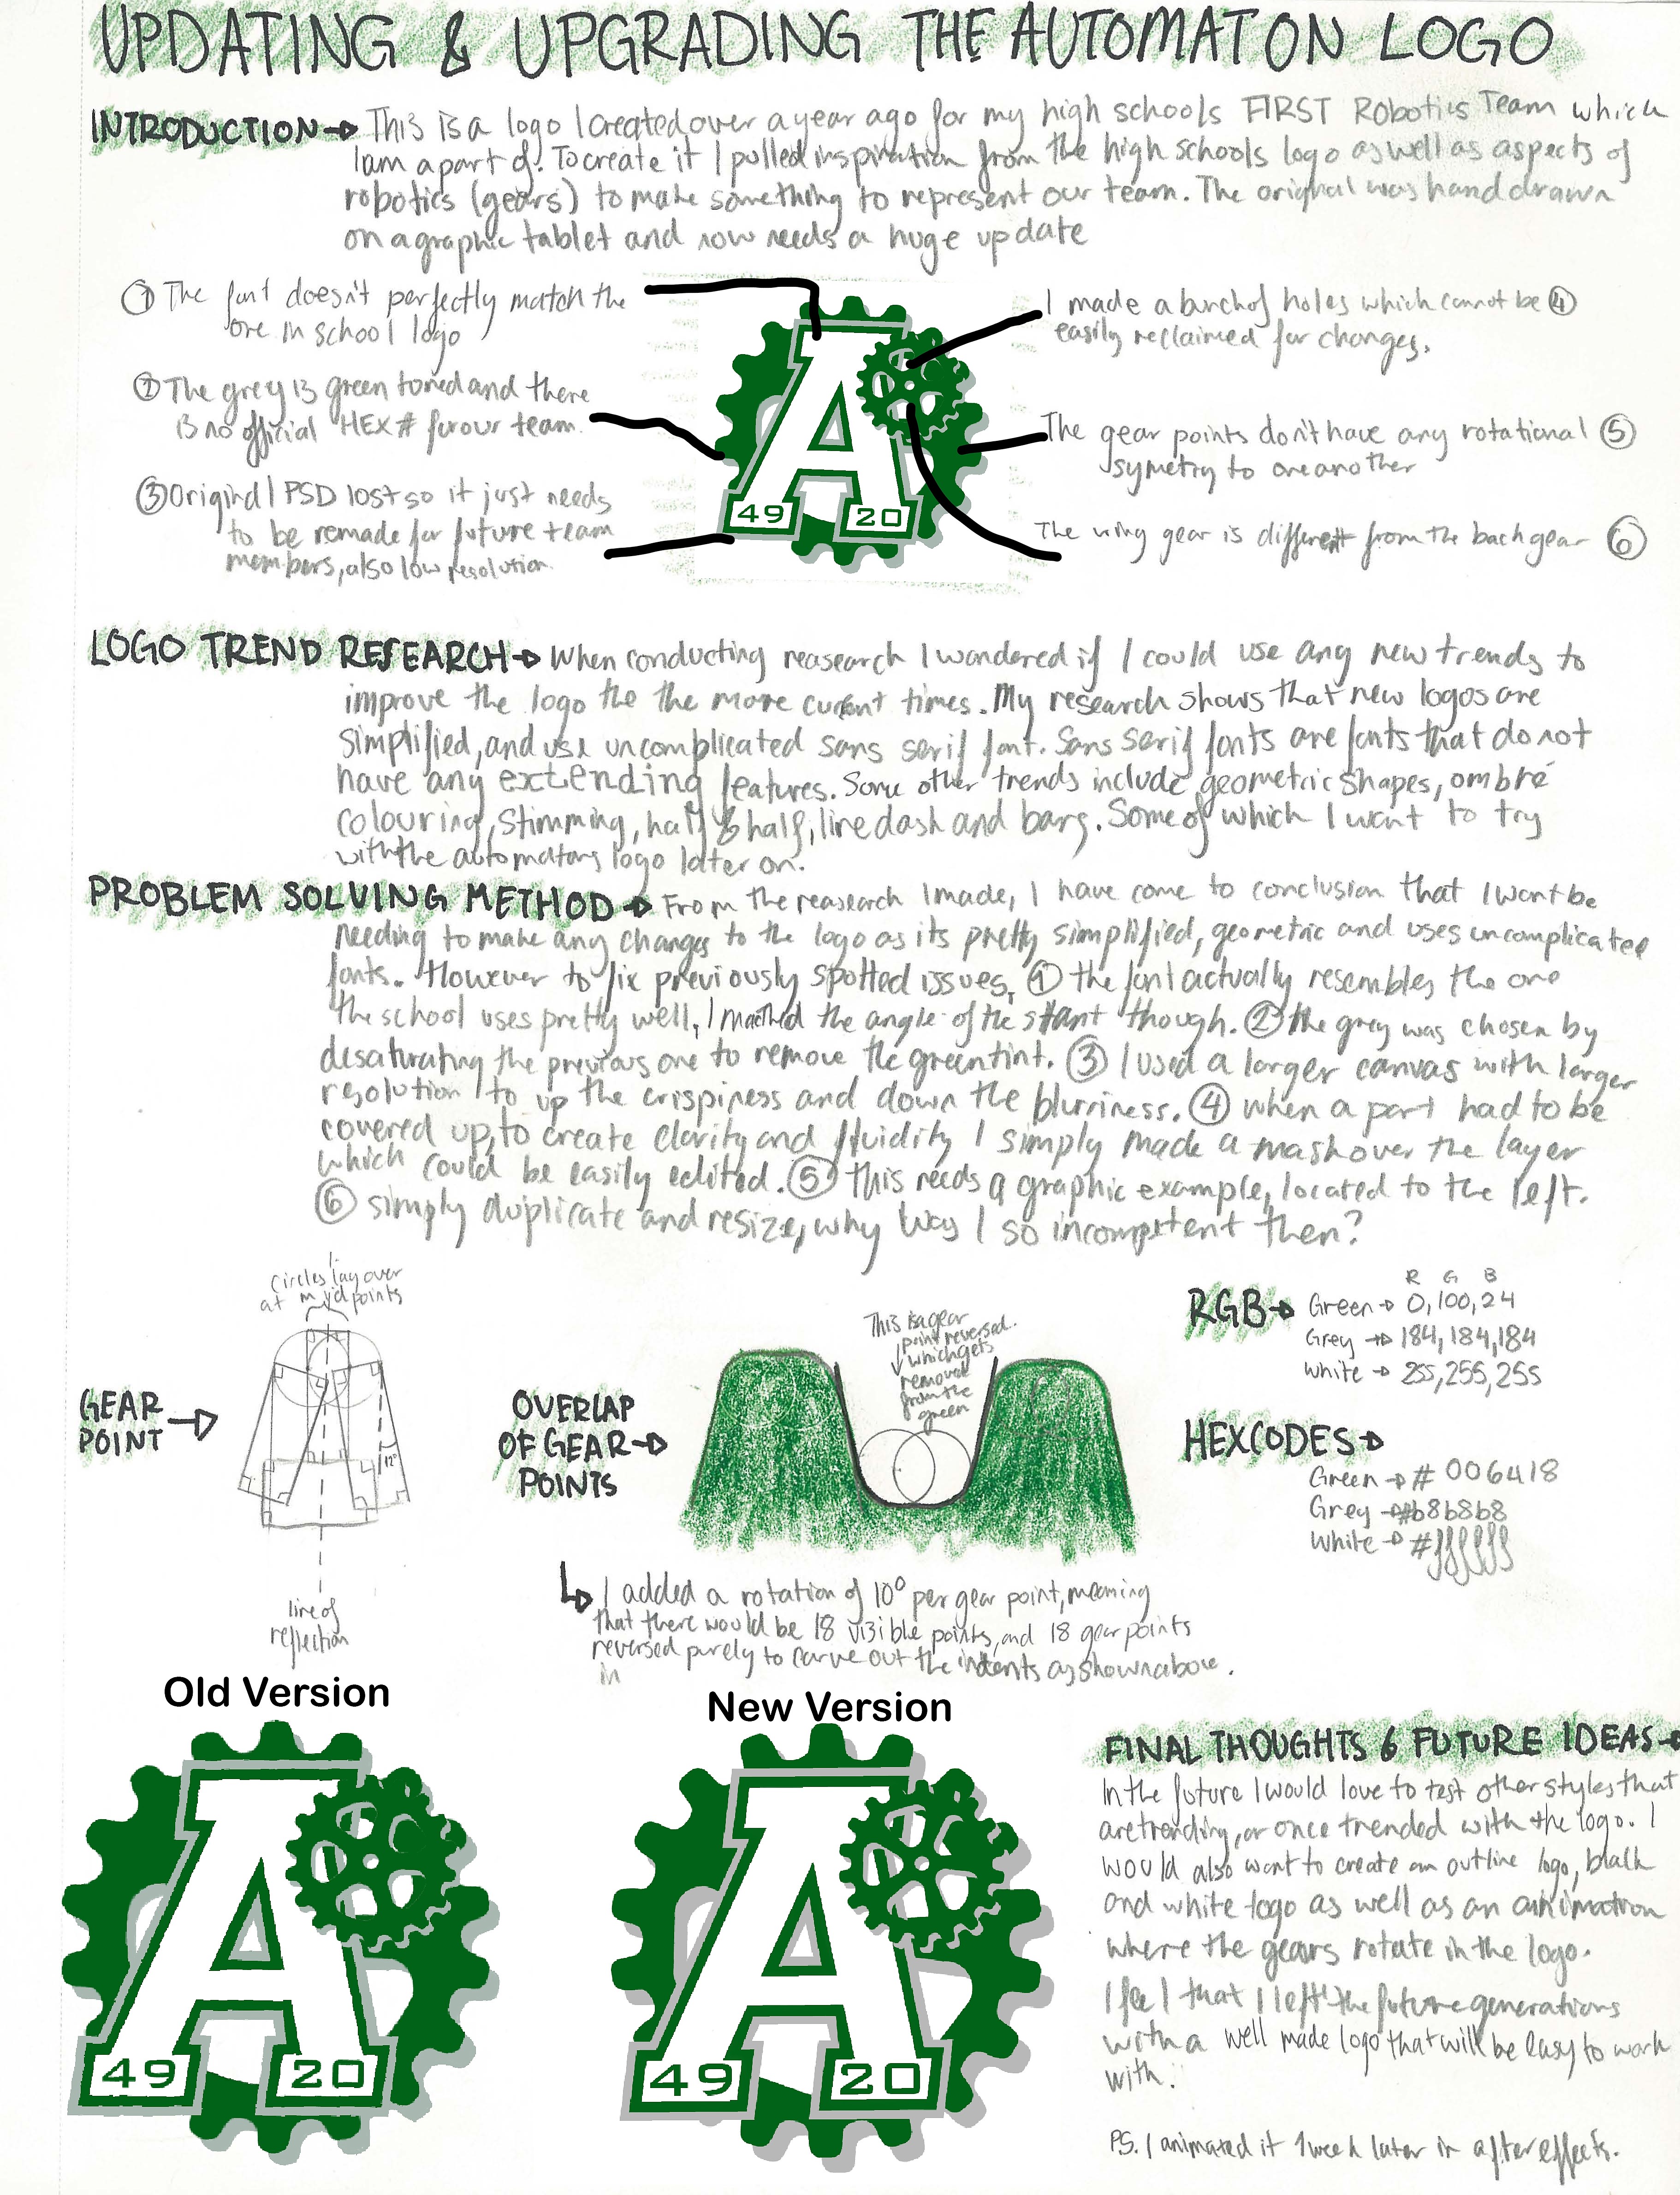 UPDATING & UPGRADING THE AUTOMATON LOGO
INTRODUCTION → This is a logo I created over a year ago for my high schools FIRST Robotics Team which
I am a part of. To create it I pulled inspiration from the high schools logo as well as aspects of
robotics (gears) to make something to represent our team. The original was hand drawn
on a graphic tablet and now needs a huge update
① The font doesn't perfectly match the
one in school logo
② The grey is green toned and there
is no official HEX # for our team.
③ Original PSD lost so it just needs
to be remade for future team
members, also low resolution
I made a bunch of holes which cannot be ④
easily reclaimed for changes.
The gear points don't have any rotational ⑤
symetry to one another
The wing gear is different from the back gear ⑥
49 20
LOGO TREND RESEARCH → When conducting reasearch I wondered if I could use any new trends to
improve the logo the the more current times. My research shows that new logos are
simplified, and use uncomplicated sans serif font. Sans serif fonts are fonts that do not
have any extending features. Some other trends include geometric shapes, ombré
colouring, stimming, half & half, line dash and bars. Some of which I want to try
with the automatons logo later on.
PROBLEM SOLVING METHOD → From the reasearch I made, I have come to conclusion that I wont be
needing to make any changes to the logo as its pretty simplified, geometric and uses uncomplicated
fonts. However to fix previously spotted issues, ① the font actually resembles the one
the school uses pretty well, I mathed the angle of the slant though. ② the grey was chosen by
desaturating the previous one to remove the green tint. ③ I used a larger canvas with larger
resolution to up the crispiness and down the blurriness. ④ when a part had to be
covered up, to create clarity and fluidity I simply made a mask over the layer
which could be easily edited. ⑤ this needs a graphic example, located to the left.
⑥ simply duplicate and resize, why was I so incompetent then?
circles lay over
at midpoints
GEAR
POINT →
12°
line of
reflection
OVERLAP
OF GEAR →
POINTS
This is a gear
point reversed.
↓ which gets
removed
from the
green
↳ I added a rotation of 10° per gear point, meaning
that there would be 18 visible points, and 18 gear points
reversed purely to carve out the indents as shown above.
in
R G B
RGB → Green → 0,100,24
Grey → 184,184,184
White → 255,255,255
HEXCODES →
Green → # 006418
Grey → #b8b8b8
White → #ffffff
Old Version
49 20
New Version
49 20
FINAL THOUGHTS & FUTURE IDEAS →
In the future I would love to test other styles that
are trending, or once trended with the logo. I
would also want to create an outline logo, black
and white logo as well as an animation
where the gears rotate in the logo.
I feel that I left the future generations
with a well made logo that will be easy to work
with.
PS. I animated it 1 week later in after effects.